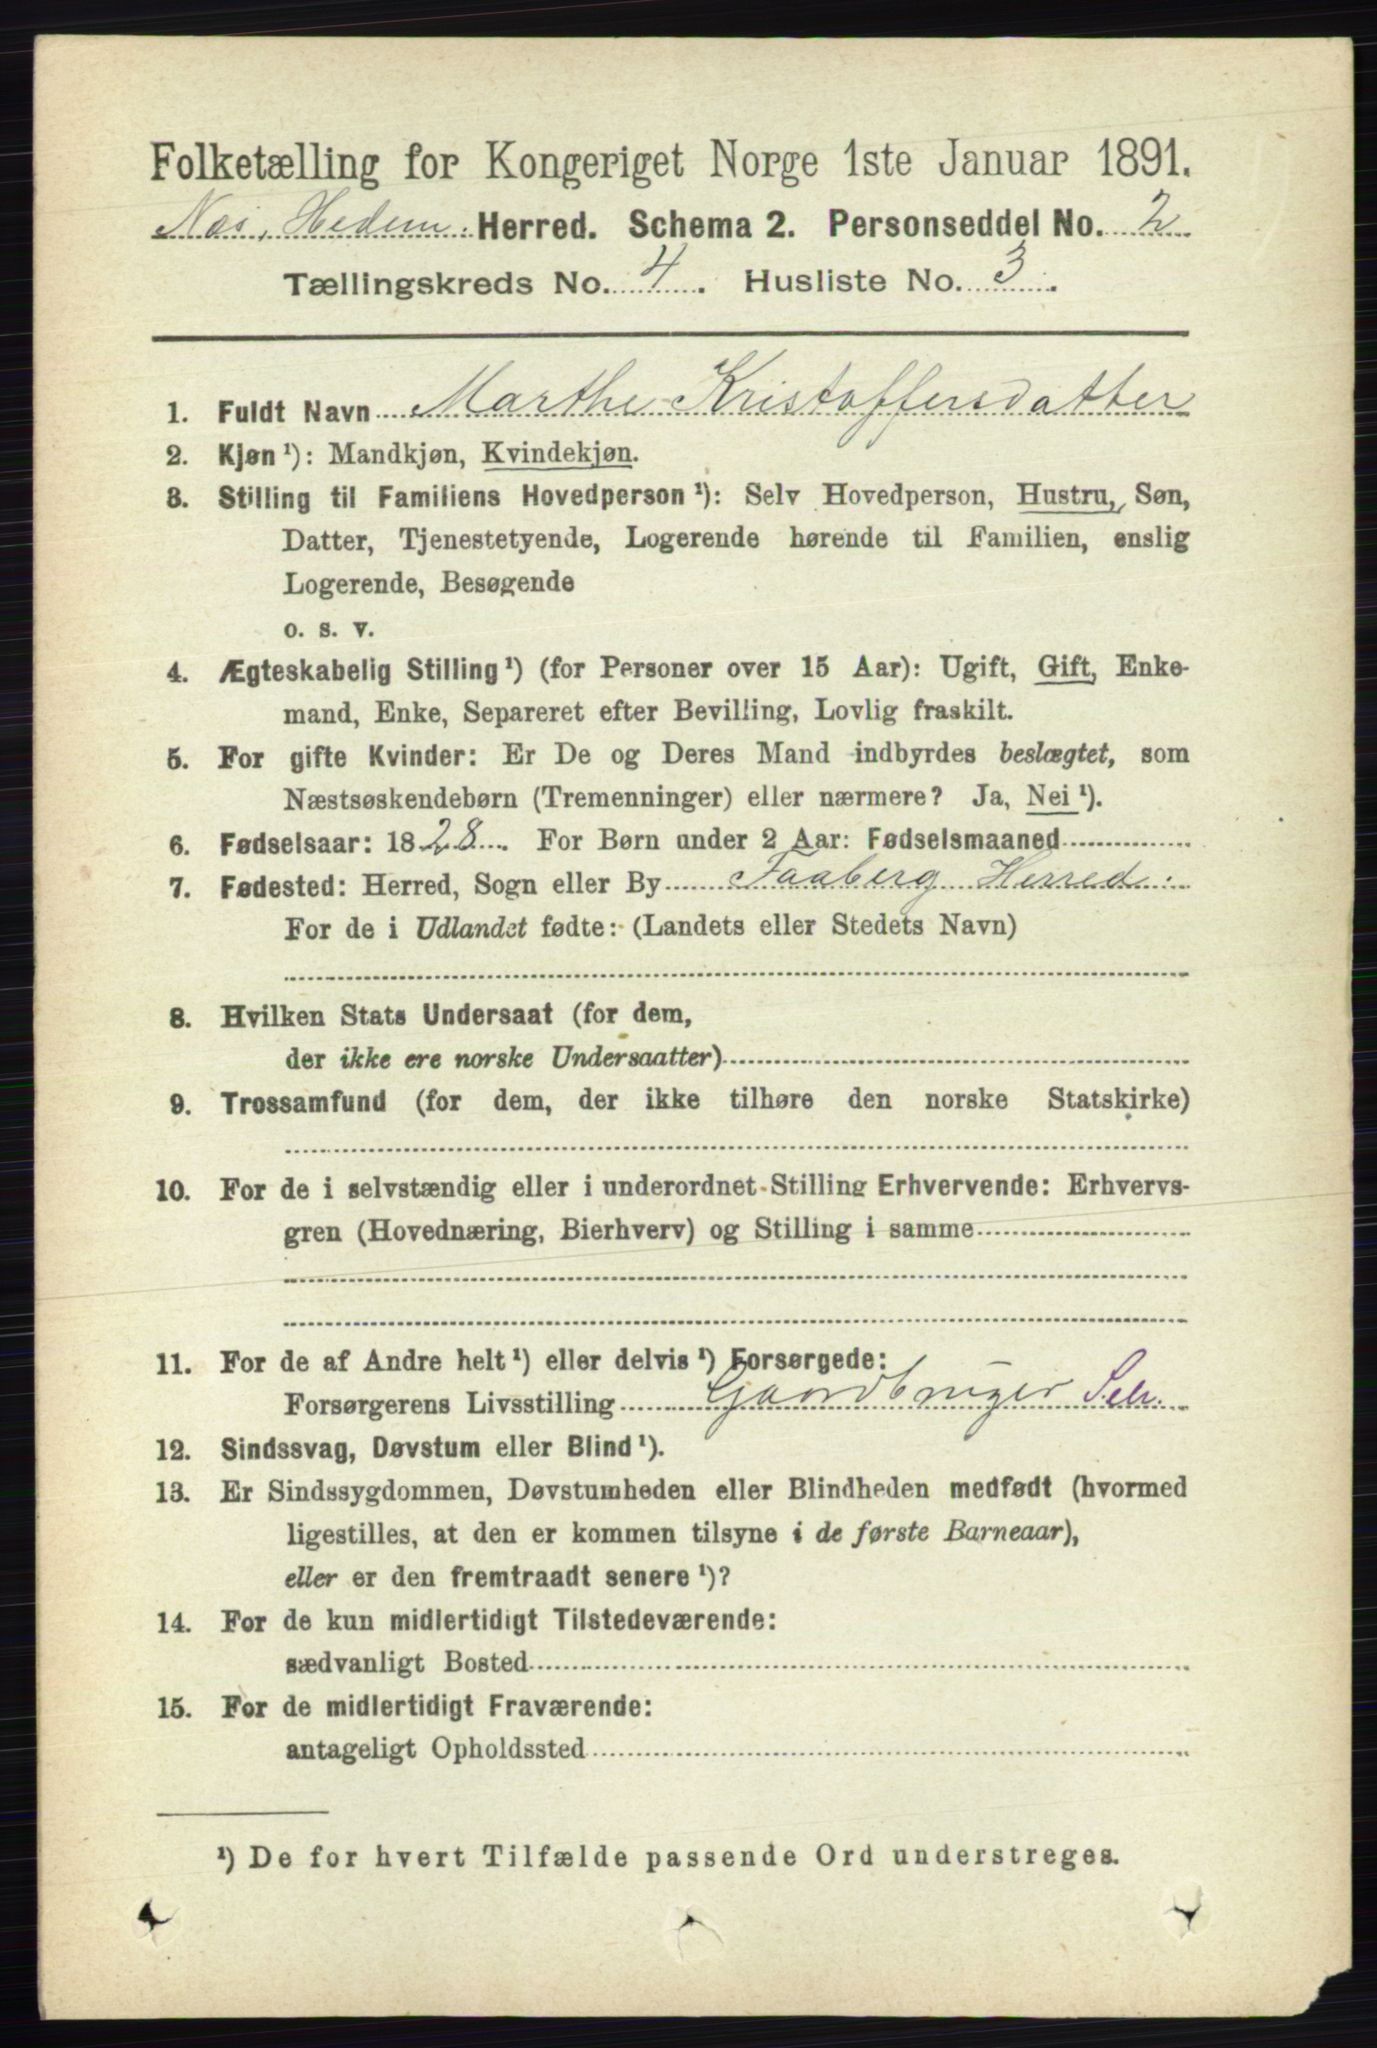 Folketælling for Kongeriget Norge 1ste Januar 1891.
Nes, Hedem. Herred. Schema 2. Personseddel No. 2
Tællingskreds No. 4. Husliste No. 3.
1. Fuldt Navn Marthe Kristoffersdatter
2. Kjøn ¹): Mandkjøn, Kvindekjøn.
3. Stilling til Familiens Hovedperson ¹): Selv Hovedperson, Hustru, Søn,
Datter, Tjenestetyende, Logerende hørende til Familien, enslig
Logerende, Besøgende
o. s. v.
4. Ægteskabelig Stilling ¹) (for Personer over 15 Aar): Ugift, Gift, Enke-
mand, Enke, Separeret efter Bevilling, Lovlig fraskilt.
5. For gifte Kvinder: Er De og Deres Mand indbyrdes beslægtet, som
Næstsøskendebørn (Tremenninger) eller nærmere? Ja, Nei ¹).
6. Fødselsaar: 1828. For Børn under 2 Aar: Fødselsmaaned
7. Fødested: Herred, Sogn eller By Faaberg Herred.
For de i Udlandet fødte: (Landets eller Stedets Navn)
8. Hvilken Stats Undersaat (for dem,
der ikke ere norske Undersaatter)
9. Trossamfund (for dem, der ikke tilhøre den norske Statskirke)
10. For de i selvstændig eller i underordnet Stilling Erhvervende: Erhvervs-
gren (Hovednæring, Bierhverv) og Stilling i samme
11. For de af Andre helt ¹) eller delvis ¹) Forsørgede:
Forsørgerens Livsstilling Gaardbruger Selv.
12. Sindssvag, Døvstum eller Blind ¹).
13. Er Sindssygdommen, Døvstumheden eller Blindheden medfødt (hvormed
ligestilles, at den er kommen tilsyne i de første Barneaar),
eller er den fremtraadt senere ¹)?
14. For de kun midlertidigt Tilstedeværende:
sædvanligt Bosted
15. For de midlertidigt Fraværende:
antageligt Opholdssted
¹) De for hvert Tilfælde passende Ord understreges.